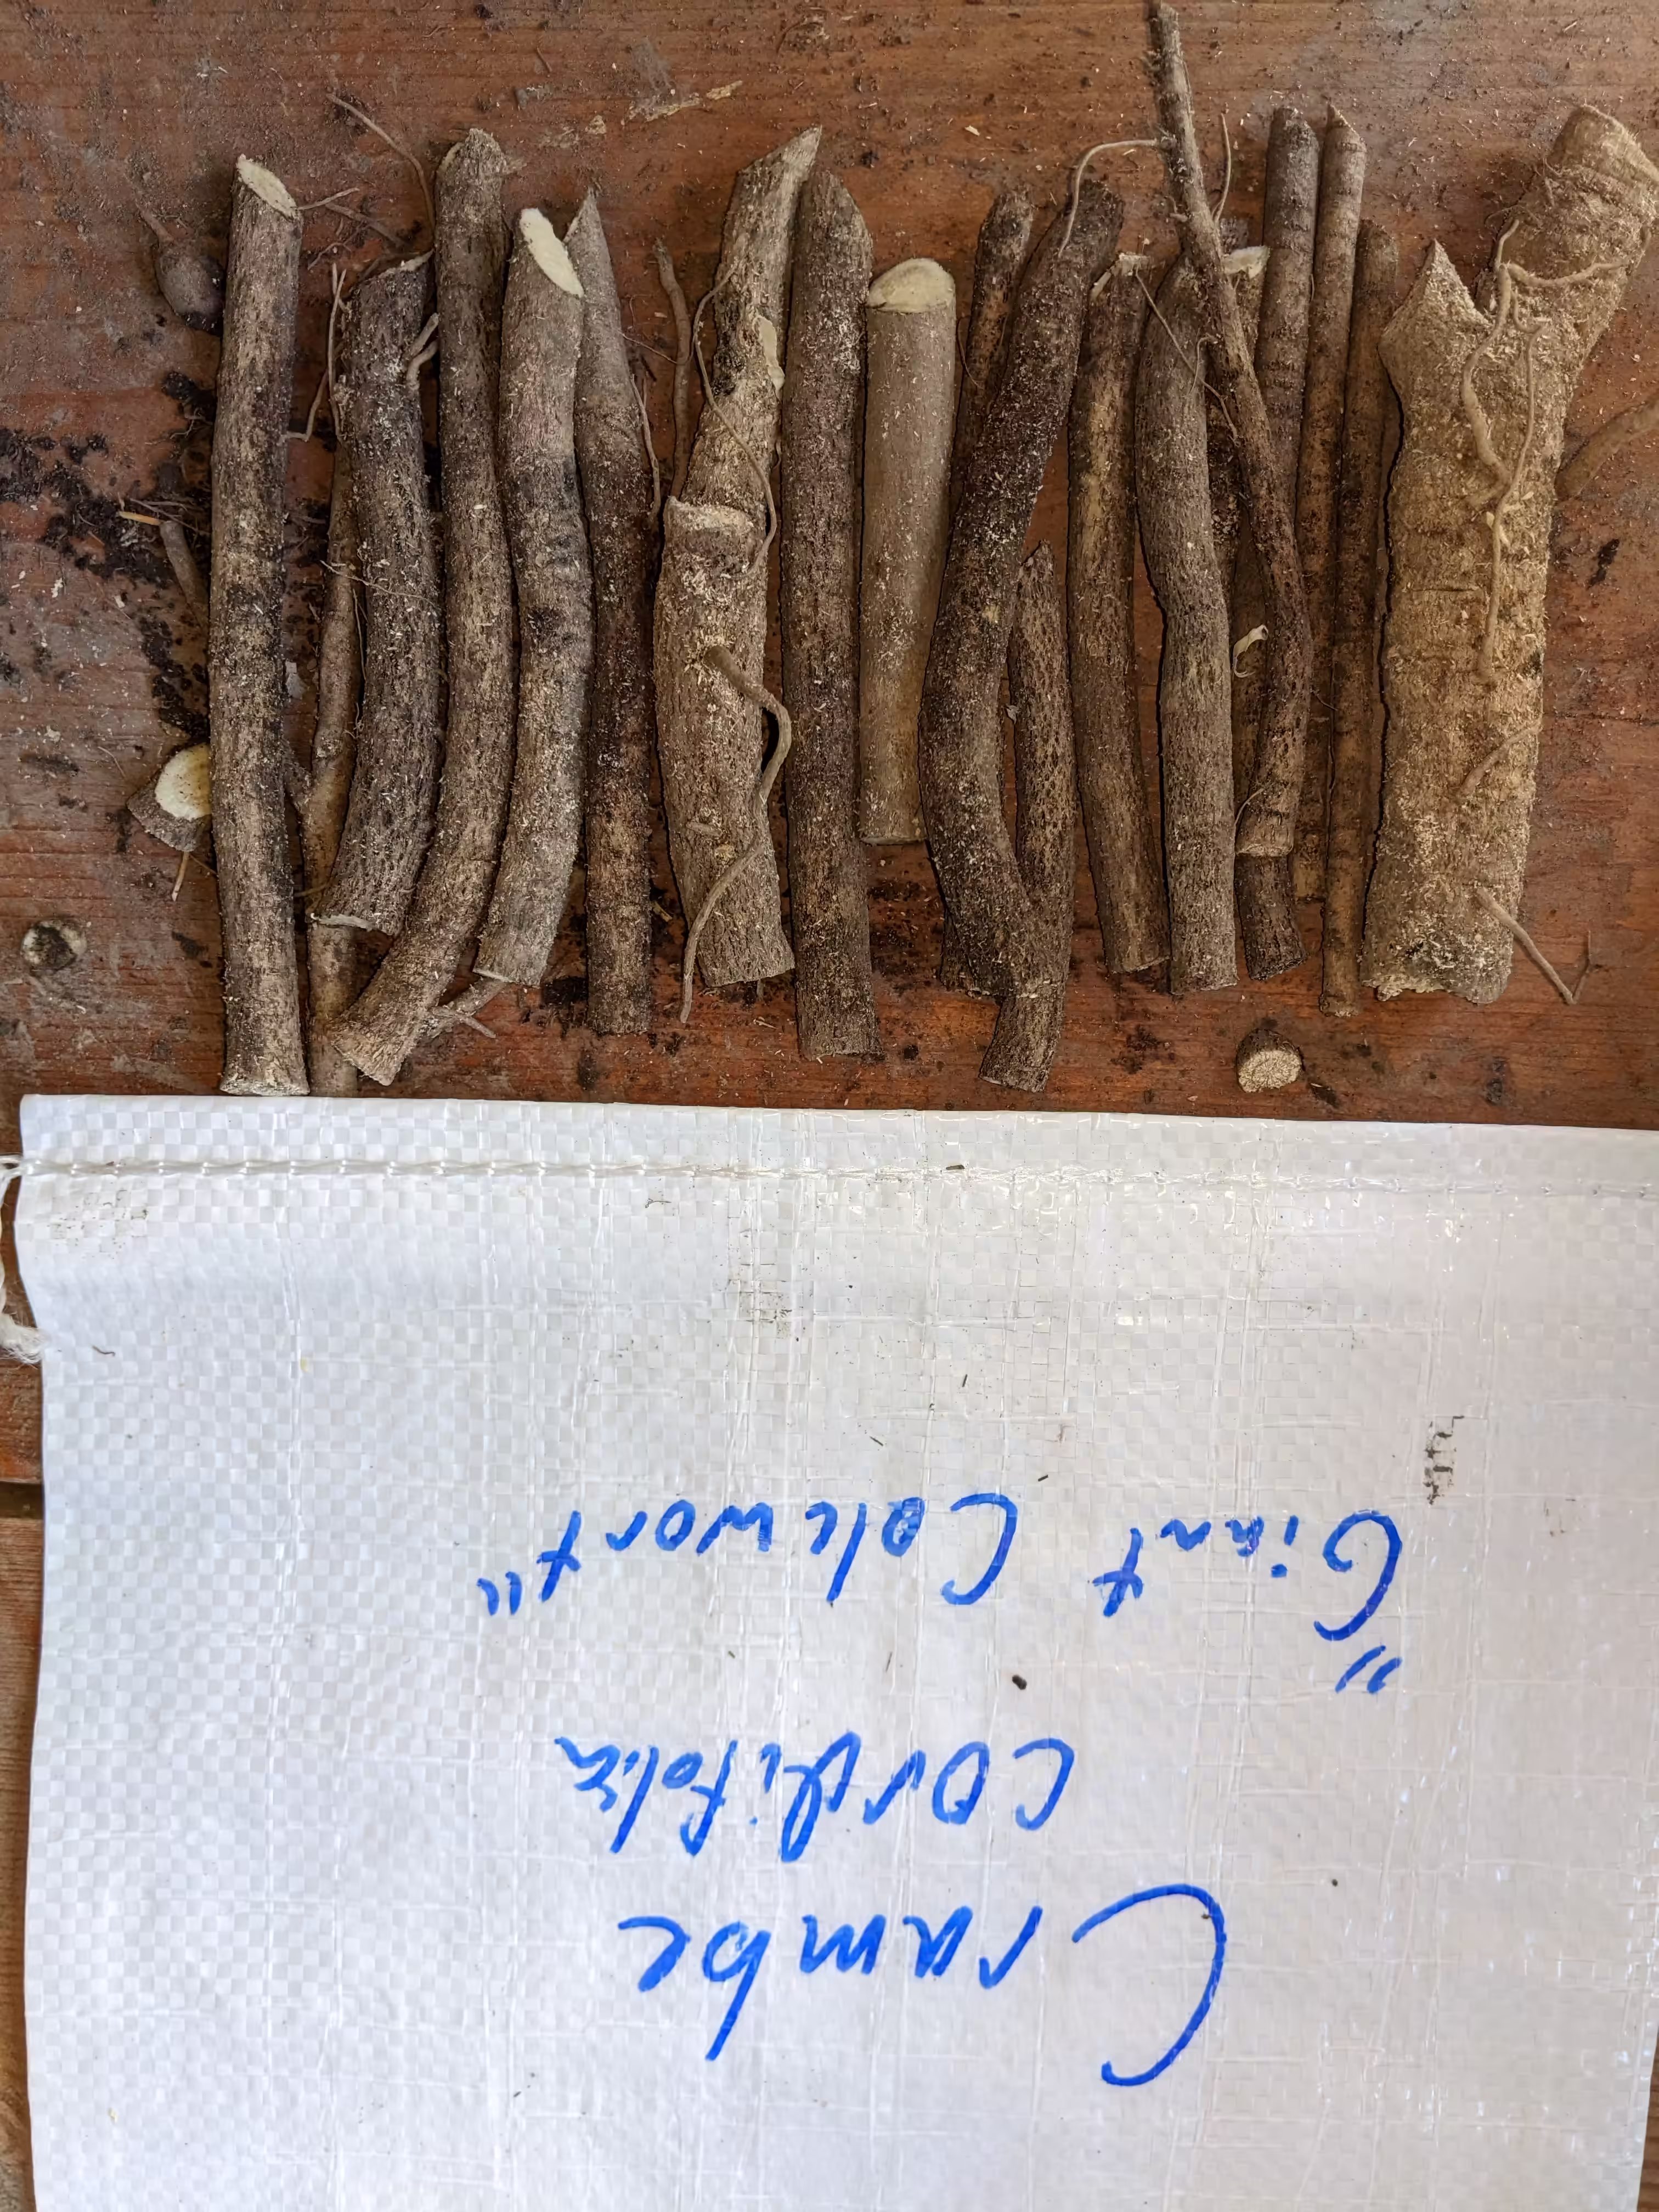 Crambe
cordifolia
"Giant Colewort"